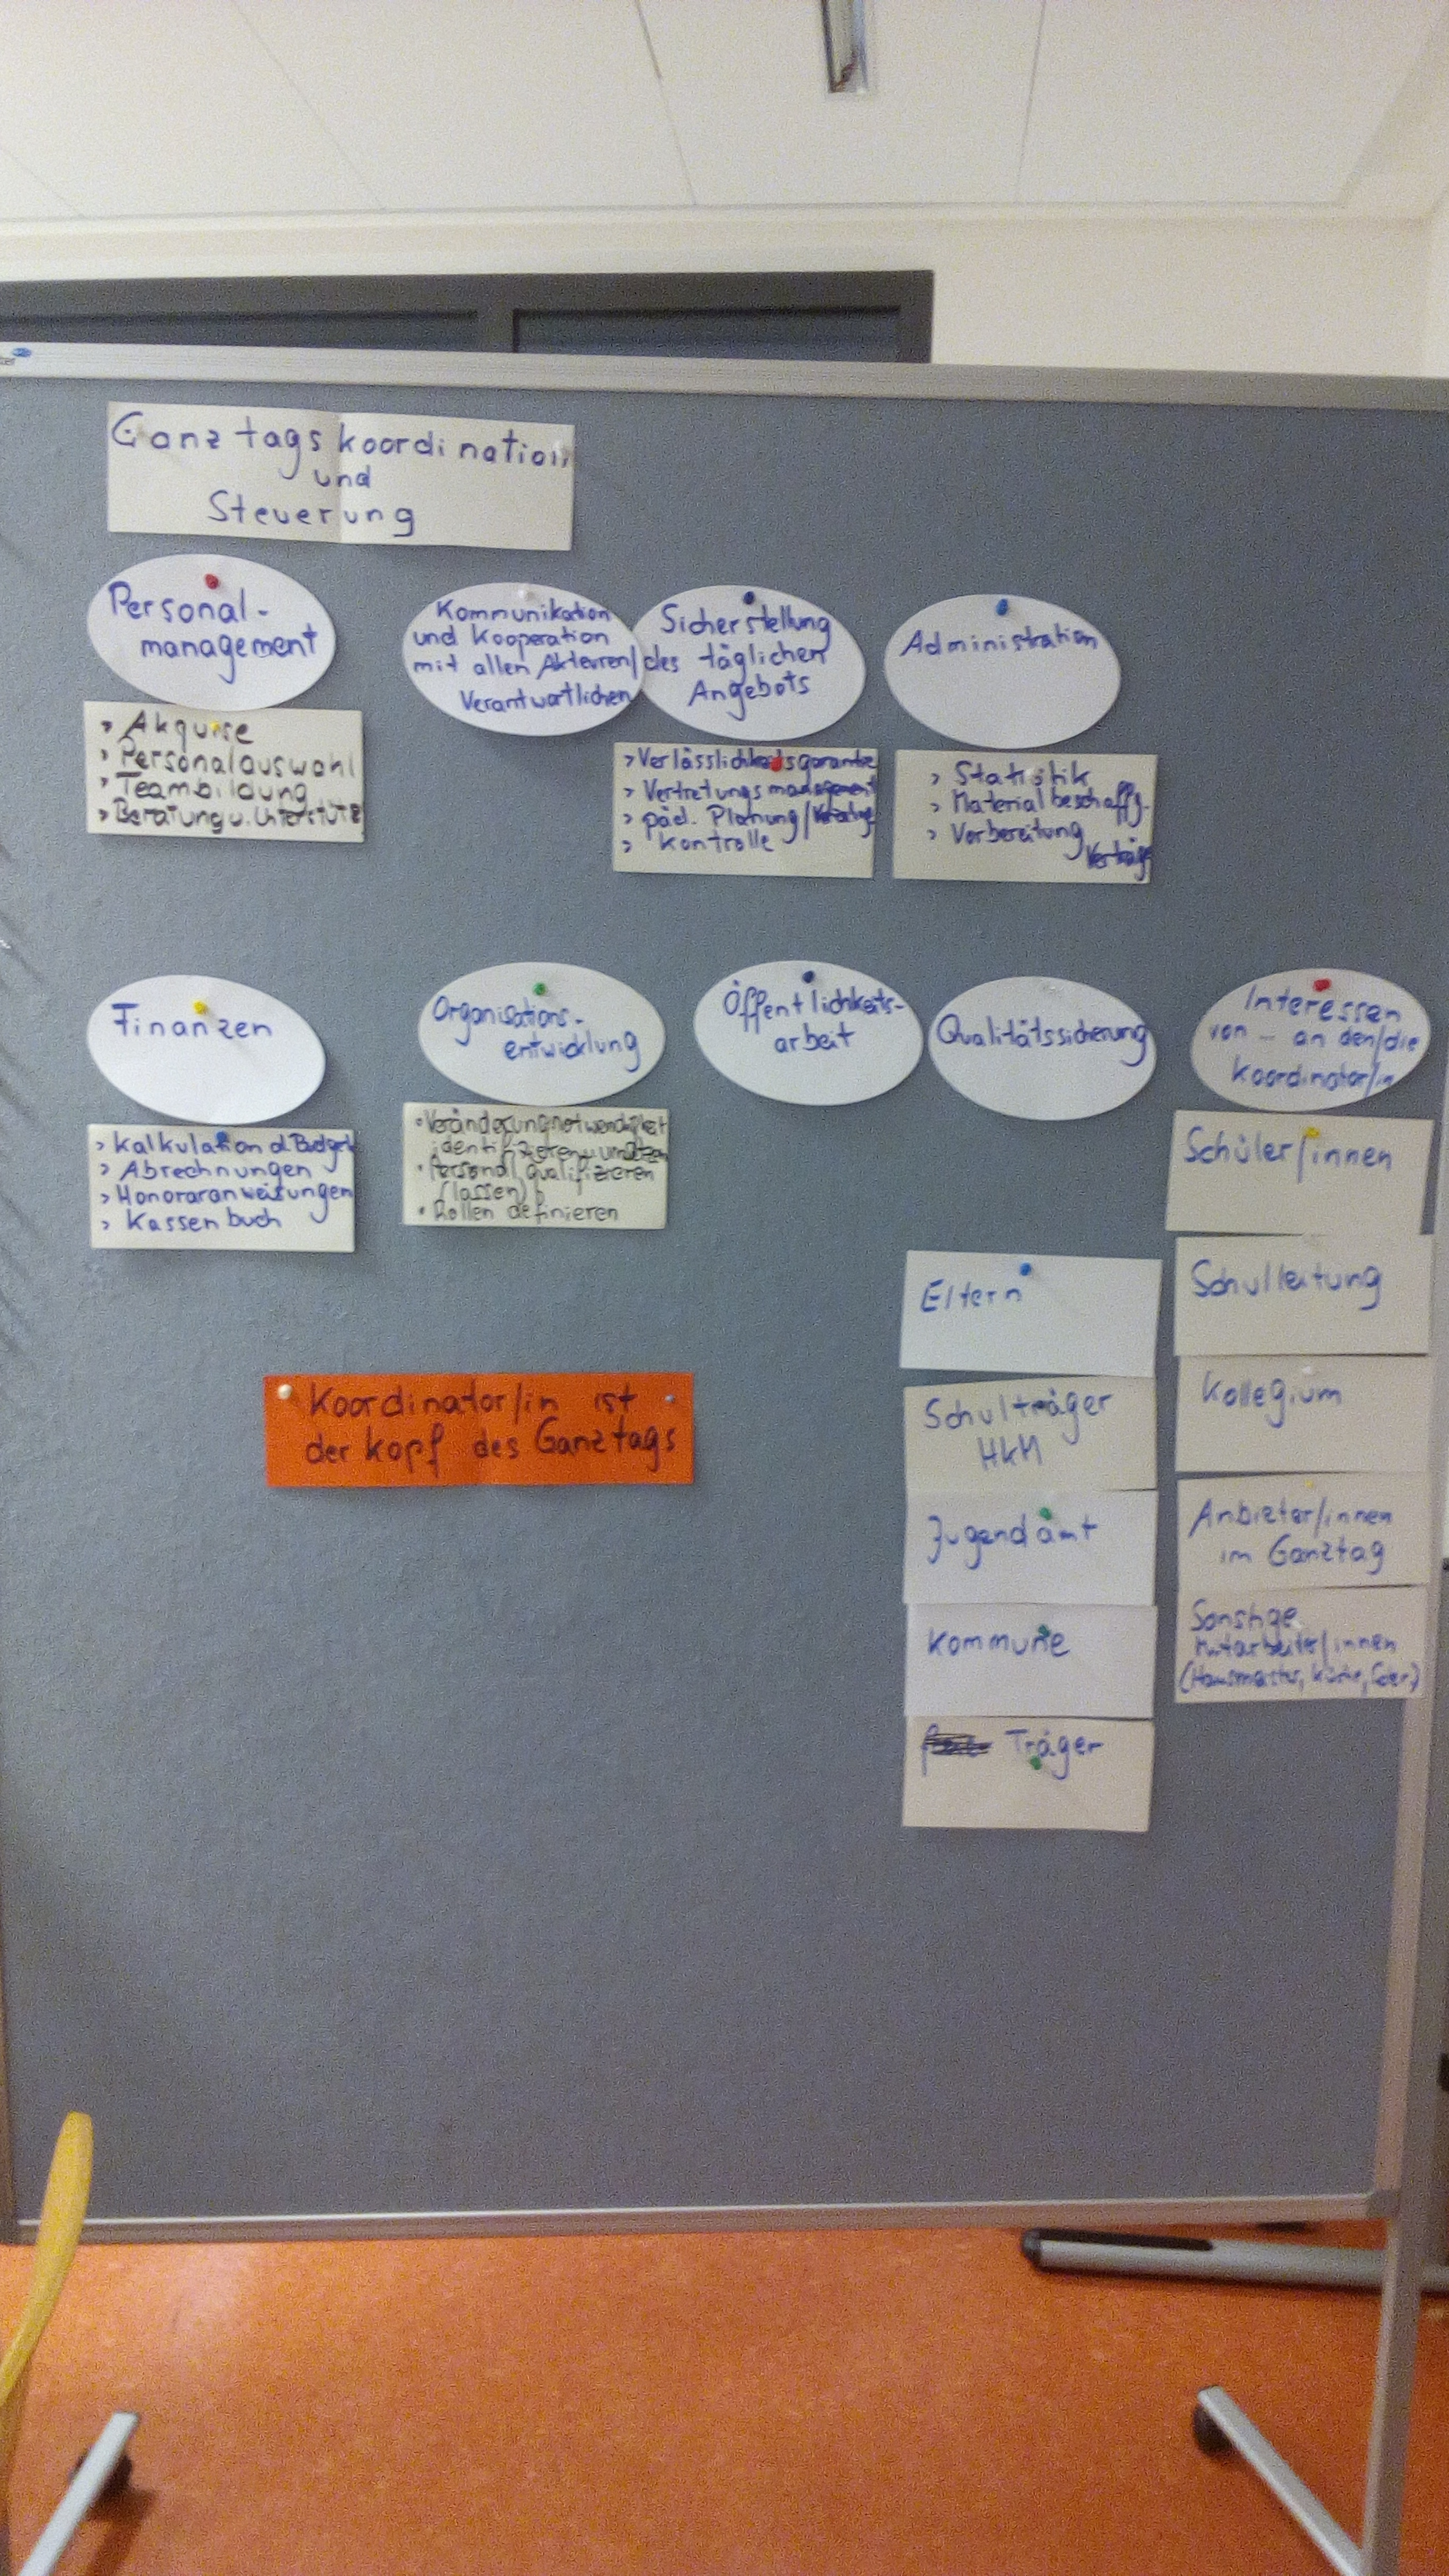 Ganztagskoordination
und
Steuerung
Personal-
management
> Akquise
> Personalauswahl
> Teambildung
> Beratung u. Unterstütz
Kommunikation
und Kooperation
mit allen Akteuren/
Verantwortlichen
Sicherstellung
des täglichen
Angebots
> Verlässlichkeitsgarantie
> Vertretungsmanagement
> päd. Planung/
> Kontrolle
Administration
> Statistik
> Materialbeschaffg.
> Vorbereitung
Verträge
Finanzen
> Kalkulation d. Budgets
> Abrechnungen
> Honoraranweisungen
> Kassenbuch
Organisations-
entwicklung
• Veränderungsnotwendigkeit
identifizieren u. umsetzen
• Personal qualifizieren
(lassen)
• Rollen definieren
Öffentlichkeits-
arbeit
Qualitätssicherung
Interessen
von ... an den/die
Koordinator/in
Schüler/innen
Schulleitung
Kollegium
Anbieter/innen
im Ganztag
Sonstige
Mitarbeiter/innen
(Hausmeister, Küche,
Eltern
Schulträger
HKM
Jugendamt
Kommune
Träger
Koordinator/in ist
der Kopf des Ganztags